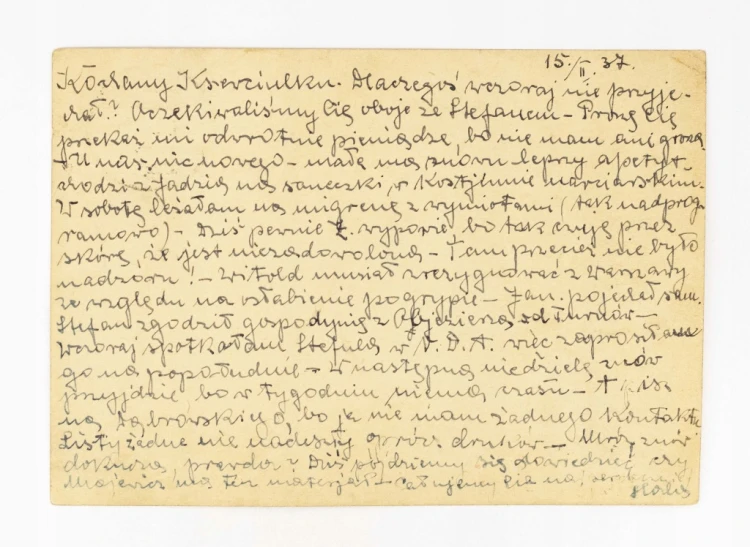 15./II. 37.
Kochany Ksawciulku. Dlaczegoś wczoraj nie przyje-
chał? Oczekiwaliśmy Cię oboje ze Stefanem – Proszę Cię
przekaż mi odwrotnie pieniądze, bo nie mam ani grosza.
– U nas nic nowego – mała ma znowu lepszy apetyt
chodzi z Jadzią na saneczki w kostjumie narciarskim.
W sobotę leżałam na migrenę z wymiotami (tak nadprog-
ramowo) – Dziś pewnie wypowie, bo tak czuję przez
skórę, że jest niezadowolona – Tam przecież nie było
nadzoru! – Witold musiał zrezygnować z Warszawy
ze względu na osłabienie po grypie – Jan. pojechał sam.
Stefan zgodził gospodynię z od Turnów –
Wczoraj spotkałam Stefula w więc zaprosiłam
go na popołudnie – W następną niedzielę znów
przyjdzie bo w tygodniu niema czasu –
na Dąbrowskiego, bo ja nie mam żadnego kontaktu
Listy żadne nie nadeszły oprócz druków – Mróz znów
dokucza, prawda? Dziś pójdziemy się dowiedzieć czy
Majewicz ma ten materjał – Całujemy Cię
Hala